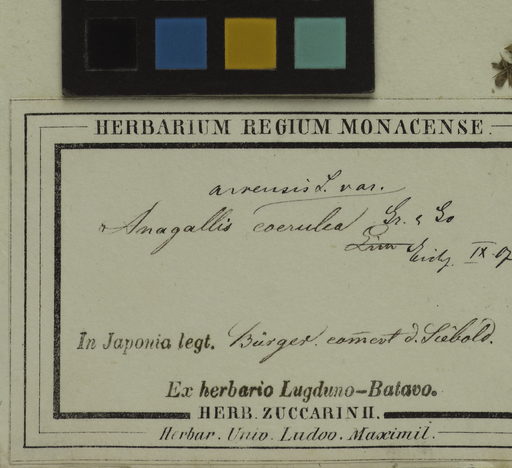 HERBARIUM REGIUM MONACENSE.
arvensis L. var.
Anagallis coerulea Gr. & Go
Linn
IX. 07
In Japonia legt. Bürger. comert d. Siebold.
Ex herbario Lugduno-Batavo.
HERB. ZUCCARINII.
Herbar. Univ. Ludov. Maximil.